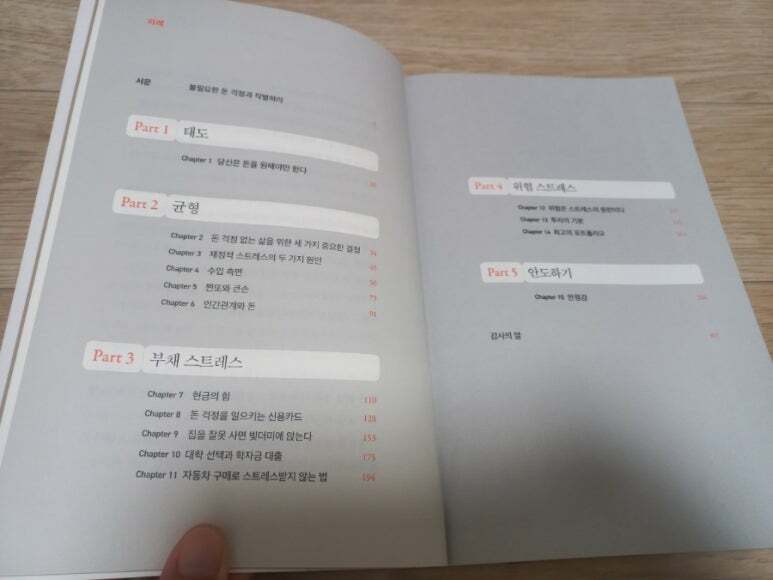 차례
서문 불필요한 돈 걱정과 작별하라
Part 1 태도
Chapter 1 당신은 돈을 원해야만 한다
Part 2 균형
Chapter 2 돈 걱정 없는 삶을 위한 세 가지 중요한 결정
Chapter 3 재정적 스트레스의 두 가지 원인
Chapter 4 수입 측면
Chapter 5 짠또와 큰손
Chapter 6 인간관계와 돈 91
Part 3 부채 스트레스
Chapter 7 현금의 힘 110
Chapter 8 돈 걱정을 일으키는 신용카드 128
Chapter 9 집을 잘못 사면 빚더미에 앉는다 153
Chapter 10 대학 선택과 학자금 대출 175
Chapter 11 자동차 구매로 스트레스받지 않는 법 194
Part 4 위험 스트레스
Chapter 12 위험은 스트레스의 원천이다
Chapter 13 투자의 기본
Chapter 14 최고의 포트폴리오
Part 5 안도하기
Chapter 15 안정감
감사의 말